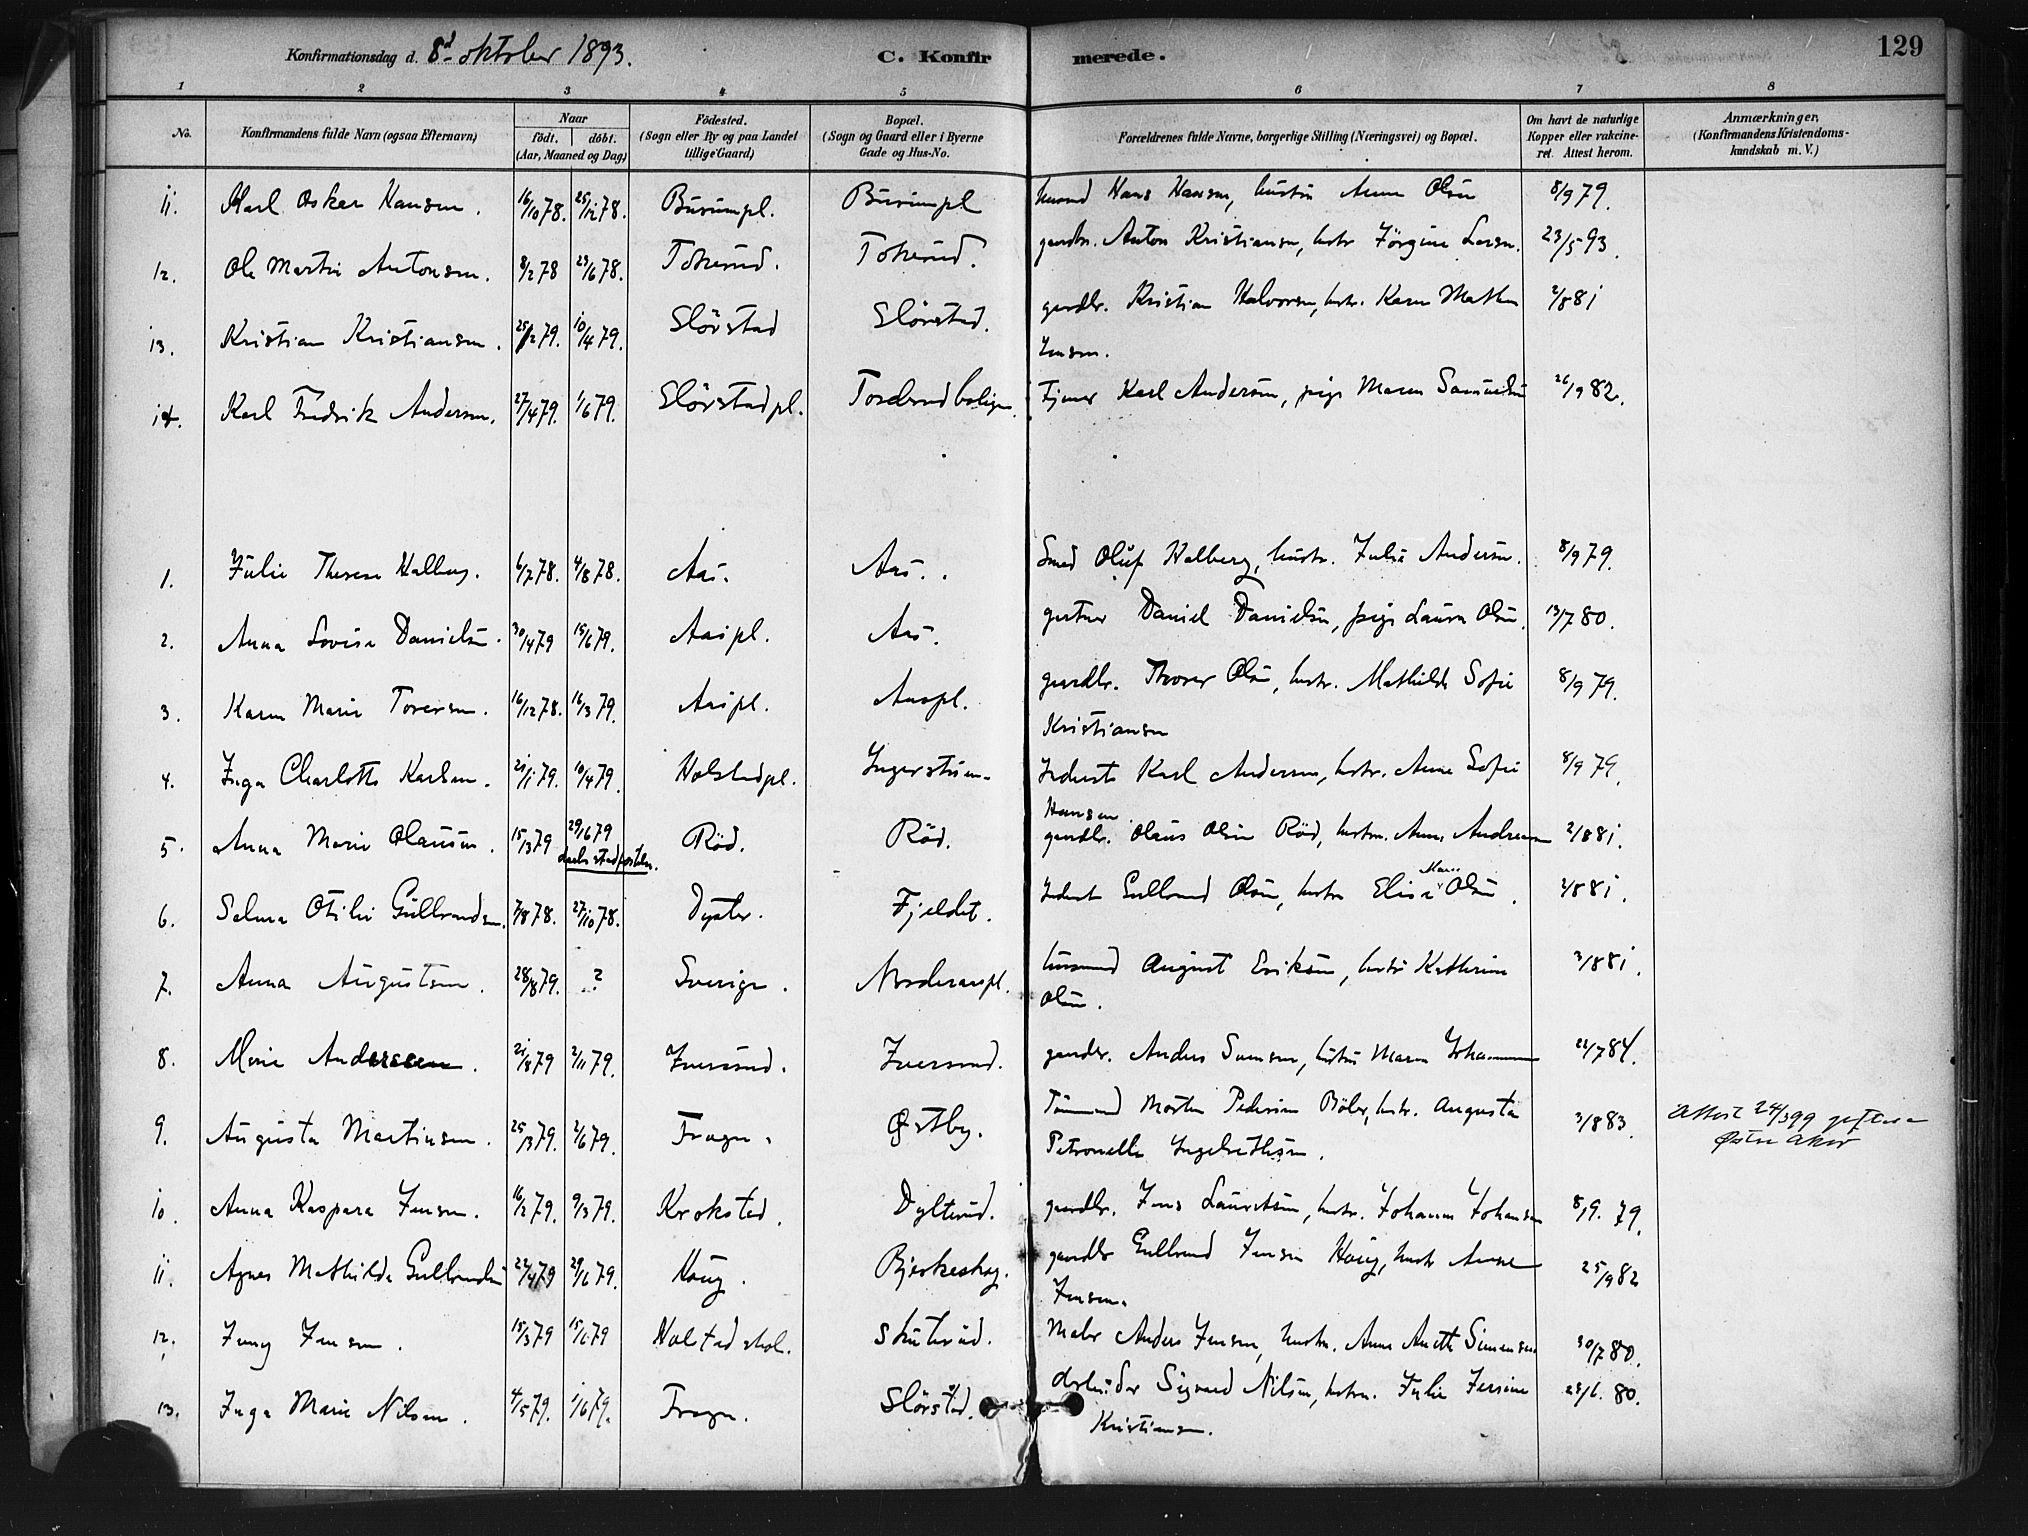 Konfirmationsdag d. 8d oktober 1893. C. Konfirmerede. 129
1 2 3 4 5 6 7 8
No. Konfirmandens fulde Navn (ogsaa Efternavn) Naar født. døbt. (Aar, Maaned og Dag) Fødested. (Sogn eller By og paa Landet tillige Gaard) Bopæl. (Sogn og Gaard eller i Byerne Gade og Hus-No. Forældrenes fulde Navne, borgerlige Stilling (Næringsvei) og Bopæl. Om havt de naturlige Kopper eller vakcineret. Attest herom. Anmærkninger, (Konfirmandens Kristendomskundskab m. V.)
11. Karl Oskar Hansen. 16/10 78. 25/12 78. Burumpl. Burumpl husmd Hans Hansen, hustru Anne Olsen 8/9 79.
12. Ole Martin Antonsen. 8/2 78 23/6 78. Tokerud. Tokerud. gaardbr. Anton Kristiansen, hustr Jörgine Larsen. 23/5 93.
13. Kristian Kristiansen. 25/2 79. 10/4 79. Slörstad Slörstad. gaardbr. Kristian Halvorsen, hustr. Karen Mathea 2/8 81
Jensen.
14. Karl Fredrik Andersen. 27/4 79. 1/6 79. Slörstadpl. Tjener Karl Andersen, pige Maren Samuelsen 26/9 82.
1. Julie Therese Halberg. 6/7 78. 4/8 78. Aas. Aas. Smed Oluf Halberg, hustr. Julie Andersen. 8/9 79.
2. Anna Lovise Danielsen. 30/4 79 15/6 79. Aaspl. Aas. gartner Daniel Danielsen, pige Laura Olsen. 13/7 80.
3. Karen Marie Toversen. 16/12 78. 16/3 79. Aaspl. Aaspl. gaardbr. Thorer Olsen, hustr. Mathilde Sofie 8/9 79.
Kristiansen
4. Inga Charlotte Karlsen. 21/1 79. 10/4 79. Holstadpl. Inderst Karl Andersen, hustr. Anne Sofie 8/9 79.
Hansen
5. Anna Marie Olausen. 15/3 79 29/6 79 Röd. Röd. gaardbr. Olaus Olsen Röd, hustru. Anne Andersen 2/8 81.
6. Selma Otilie Gulbrandsen. 7/8 78. 27/10 78. Dyster. Fjeldet. Inderst Gulbrand Olsen, hustru Elise Marie Olsen. 2/8 81.
7. Anna Augustsen. 28/8 79. ? Sverige. Norderaaspl. husmand August Eriksen, hustru Kathrine 3/8 81.
Olsen.
8. Marie Anderssen. 21/8 79 2/11 79. Iversrud. Iversrud. gaardbr. Anders Svensen, hustru Maren Johannesen 22/7 84.
9. Augusta Martinsen. 25/3 79. 2/6 79. Frogn. Østby. Tömmermd Morten Pedersen Böler, hustr. Augusta 3/8 83. Attest 24/3 99
Petronelle Ingebrethsen. Østre Aker
10. Anna Kaspara Jensen. 16/2 79. 9/3 79. Krokstad. Dylterud. gaardbr. Jens Lauritsen, hustr. Johanne Johansen 8/9. 79.
11. Agnes Mathilde Gulbrandsen 22/4 79 29/6 79. Haug. Bjerkeskog. gaardbr Gulbrand Jensen Haug, hustr Anne 25/9 82
Jensen.
12. Jenny Jensen. 15/3 79 15/6 79 Holstad skol. Skuterud. Maler Anders Jensen, hustru. Anne Anette Simensen 30/7 80.
13. Inga Marie Nilsen. 4/5 79. 1/6 79. Frogn. Slörstad. Arbeider Sigvard Nilsen, hustru. Julie Jensine 23/6. 80.
Kristiansen.